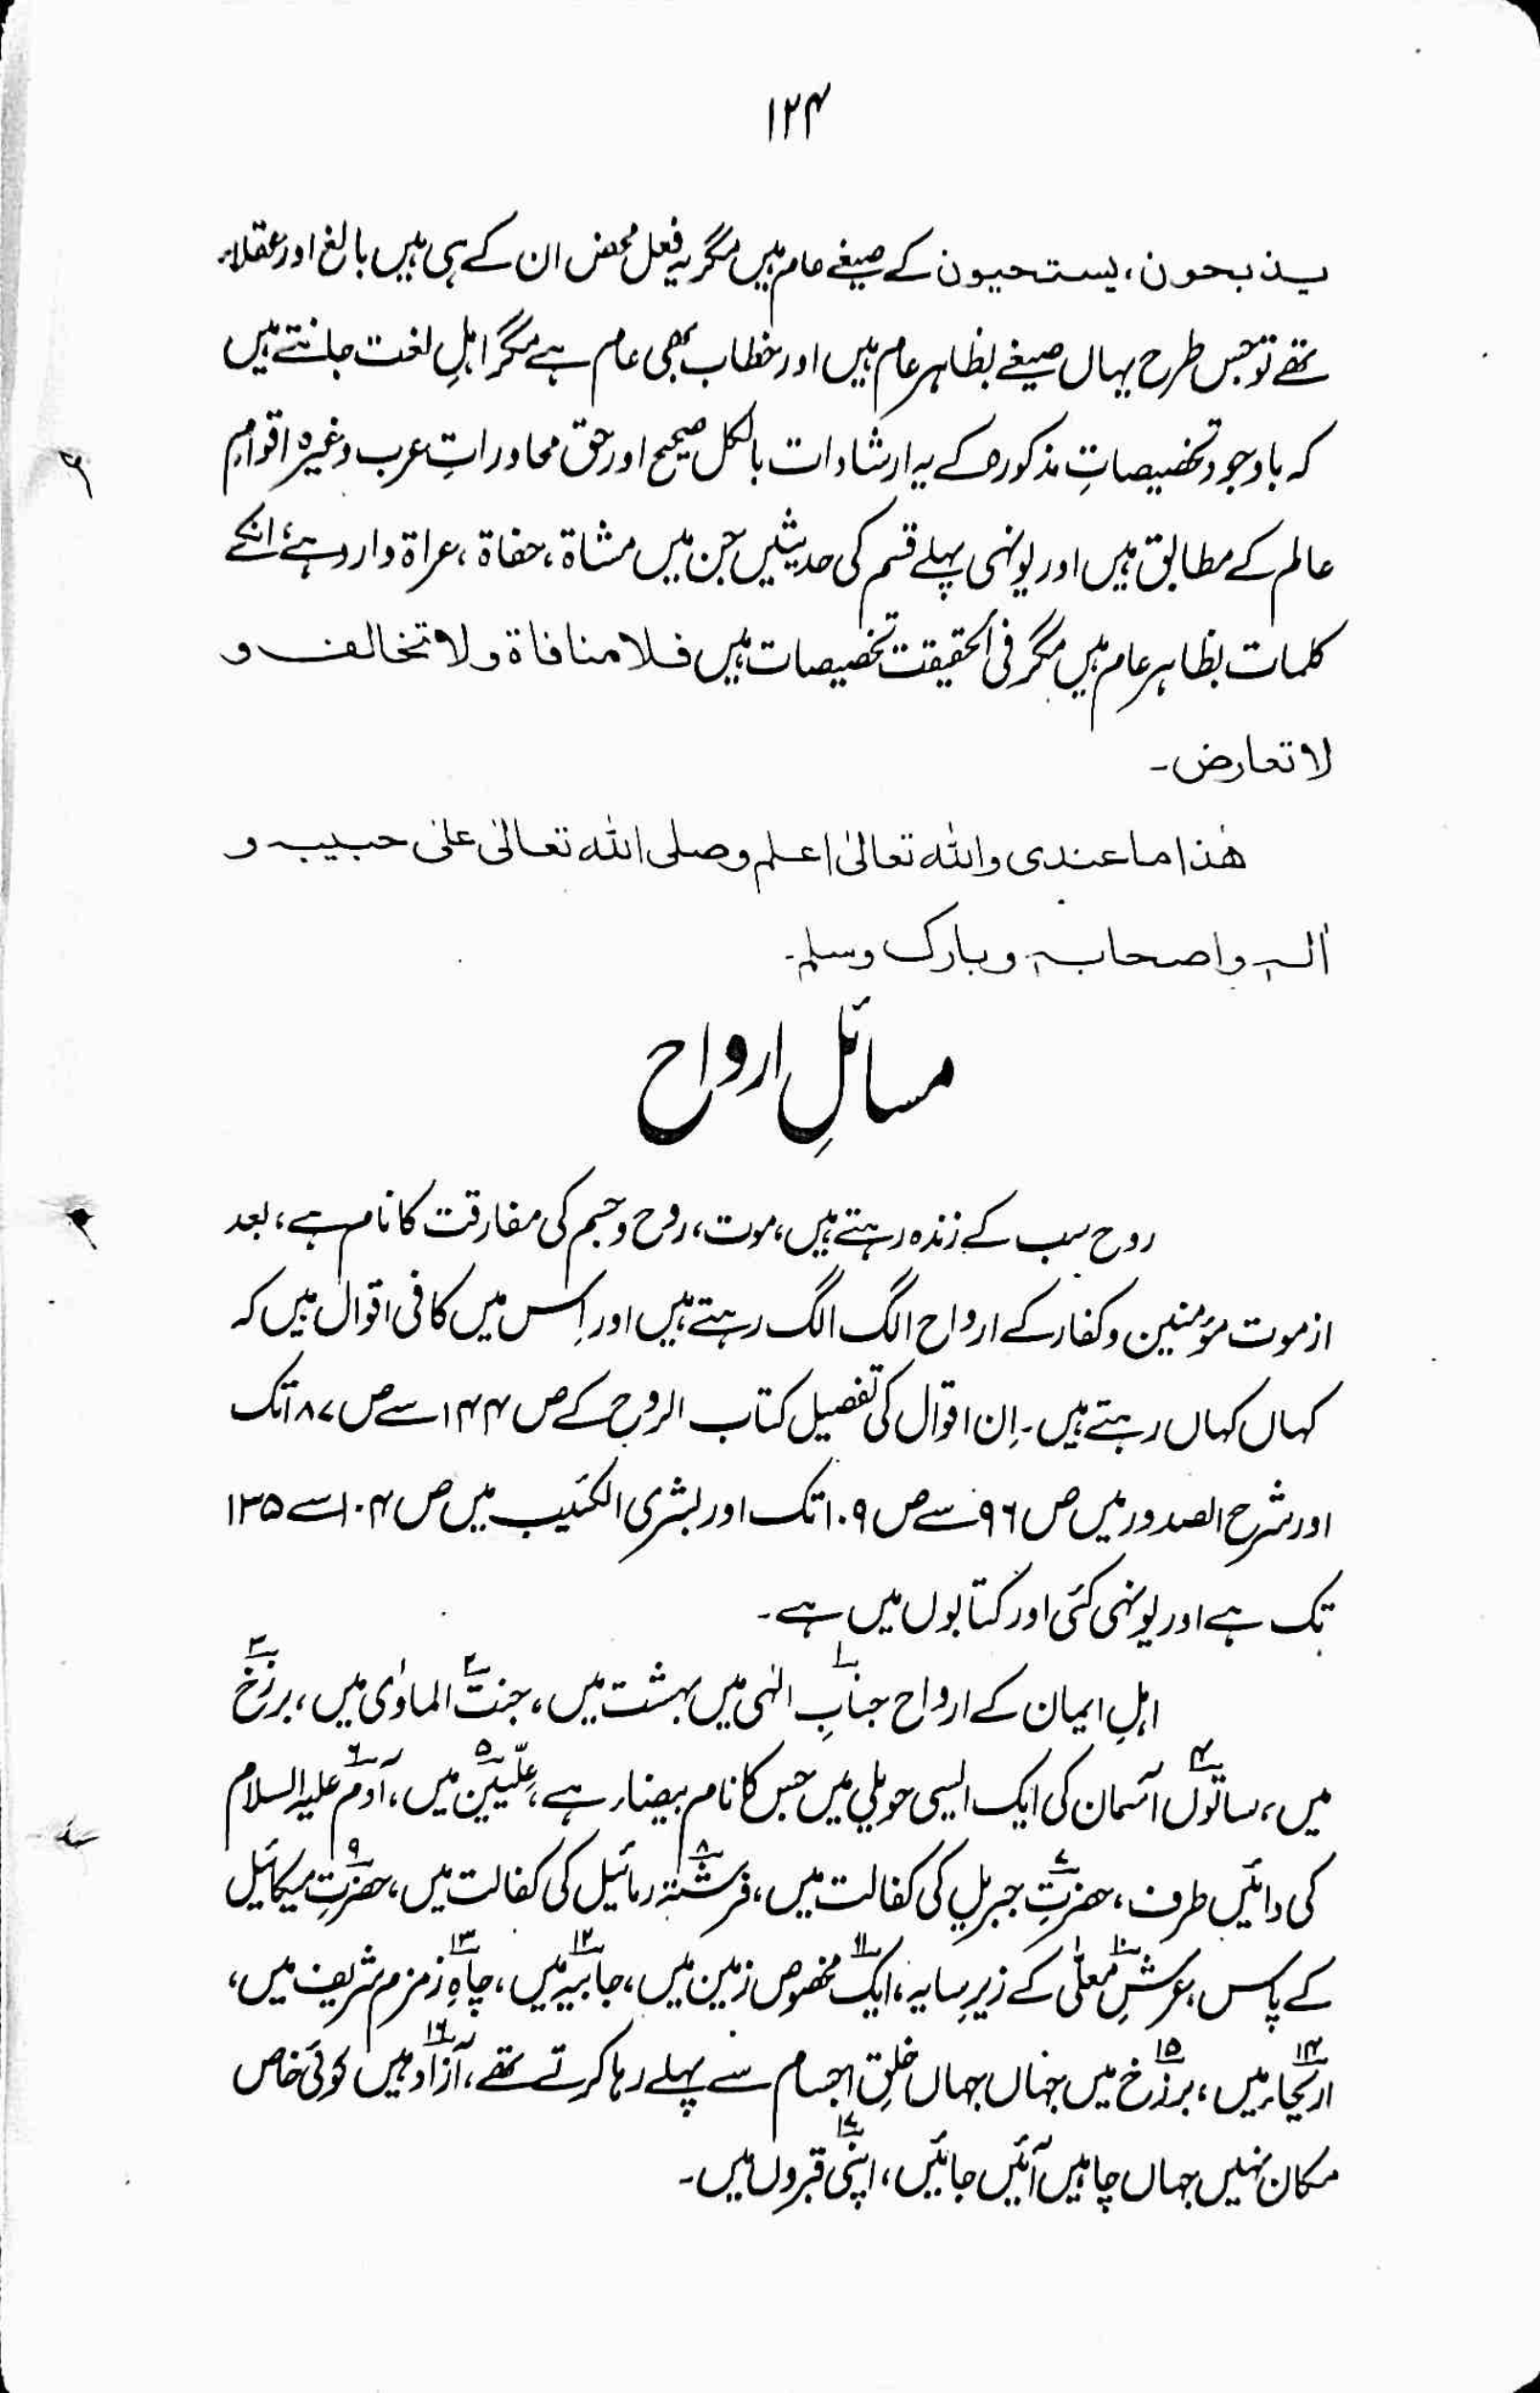 ۱۲۴
یذبحون، یستحیون کے صیغے عام ہیں مگر یہ فعل محض ان کے ہی ہیں بالغ اور عقلاء
تھے تو جس طرح یہاں صیغے بظاہر عام ہیں اور خطاب بھی عام ہے مگر اہلِ لغت جانتے ہیں
کہ باوجود تخصیصاتِ مذکورہ کے یہ ارشادات بالکل صحیح اور حق محاوراتِ عرب وغیرہ اقوامِ
عالم کے مطابق ہیں اور یونہی پہلے قسم کی حدیثیں جن میں مشاۃ، حفاۃ، عراۃ وارد ہے، انکے
کلمات بظاہر عام ہیں مگر فی الحقیقت تخصیصات ہیں فلا منافاۃ ولا تخالف و
لا تعارض۔
ھٰذا ما عندی واللہ تعالیٰ اعلم وصلی اللہ تعالیٰ علیٰ حبیبہٖ و
اٰلہٖ واصحابہٖ وبارک وسلم۔
مسائلِ ارواح
روح سب کے زندہ رہتے ہیں، موت، روح و جسم کی مفارقت کا نام ہے، بعد
از موت مؤمنین و کفار کے ارواح الگ الگ رہتے ہیں اور اِس میں کافی اقوال ہیں کہ
کہاں کہاں رہتے ہیں۔ اِن اقوال کی تفصیل کتاب الروح کے ص ۱۴۴ سے ص ۱۸۷ تک
اور شرح الصدور میں ص ۹۶ سے ص ۱۰۹ تک اور بشری الکئیب میں ص ۱۰۴ سے ۱۳۵
تک ہے اور یونہی کئی اور کتابوں میں ہے۔
اہلِ ایمان کے ارواح جنابِ۱ الٰہی میں بہشت میں، جنت۲ الماوٰی میں، برزخ۳
میں، ساتوں۴ آسمان کی ایک ایسی حویلی میں جس کا نام بیضاء ہے، علّیین۵ میں، آدم۶ علیہ السلام
کی دائیں طرف، حضرتِ۷ جبریل کی کفالت میں، فرشتہ۸ رمائیل کی کفالت میں، حضرتِ۹ میکائیل
کے پاس، عرشِ۱۰ معلّٰی کے زیرِ سایہ، ایک۱۱ مخصوص زمین میں، جابیہ۱۲ میں، چاہِ۱۳ زمزم شریف میں،
اریحاء۱۴ میں، برزخ۱۵ میں جہاں جہاں خلقِ اجسام سے پہلے رہا کرتے تھے، آزاد۱۶ ہیں کوئی خاص
مکان نہیں جہاں چاہیں آئیں جائیں، اپنی۱۷ قبروں میں۔